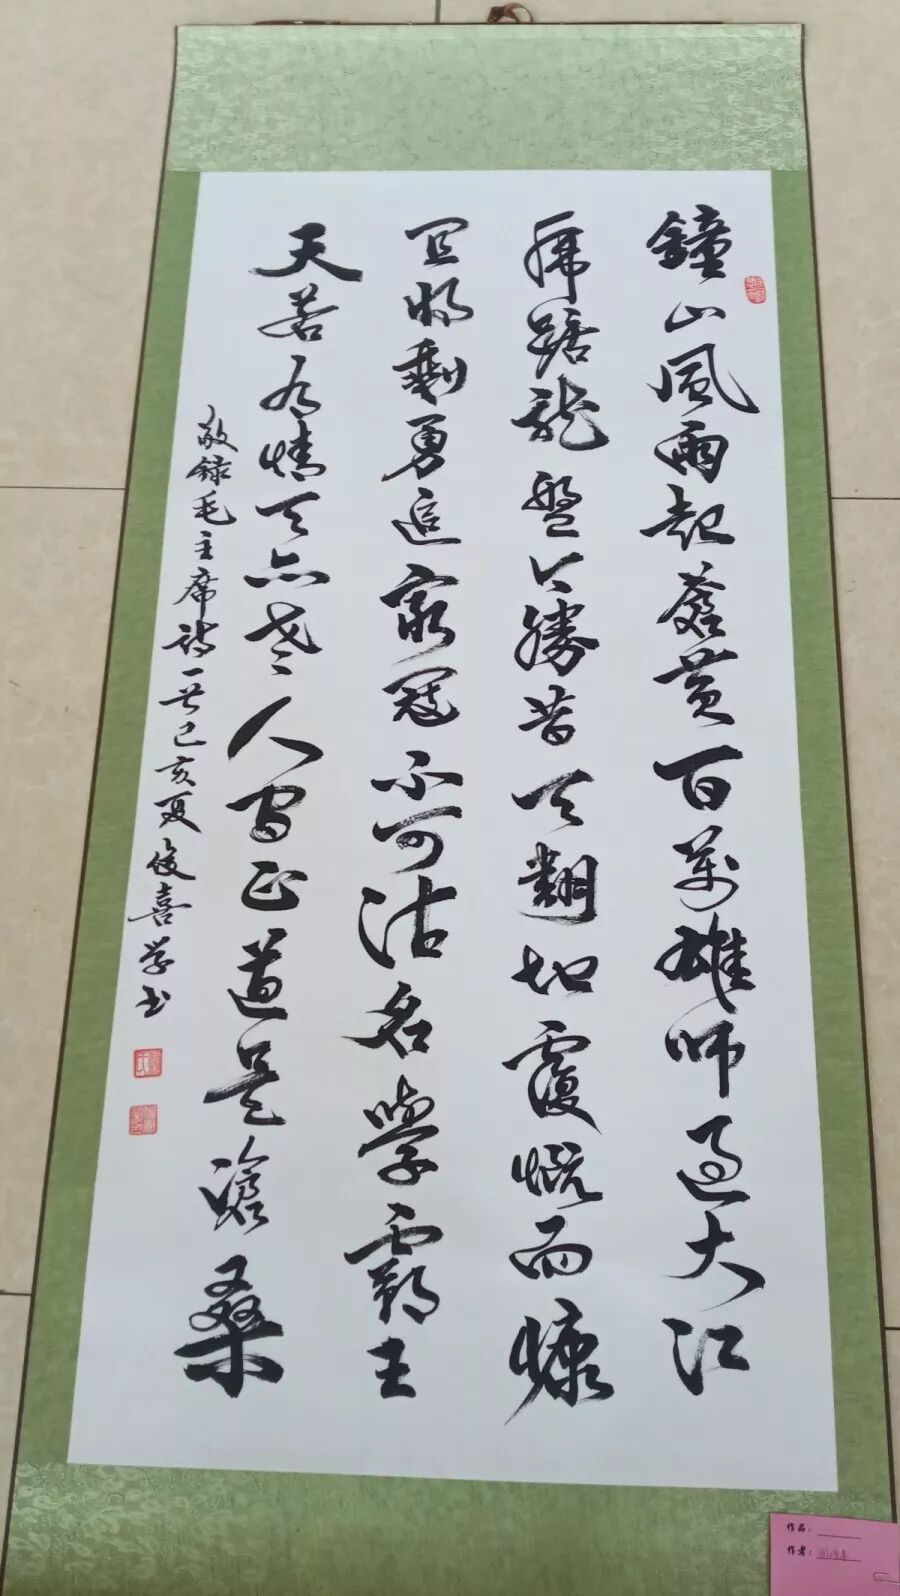 鐘山風雨起蒼黃百萬雄師過大江
虎踞龍盤今勝昔天翻地覆慨而慷
宜將剩勇追窮寇不可沽名學霸王
天若有情天亦老人間正道是滄桑
敬録毛主席詩一首己亥夏俊喜学书
作品：
作者：